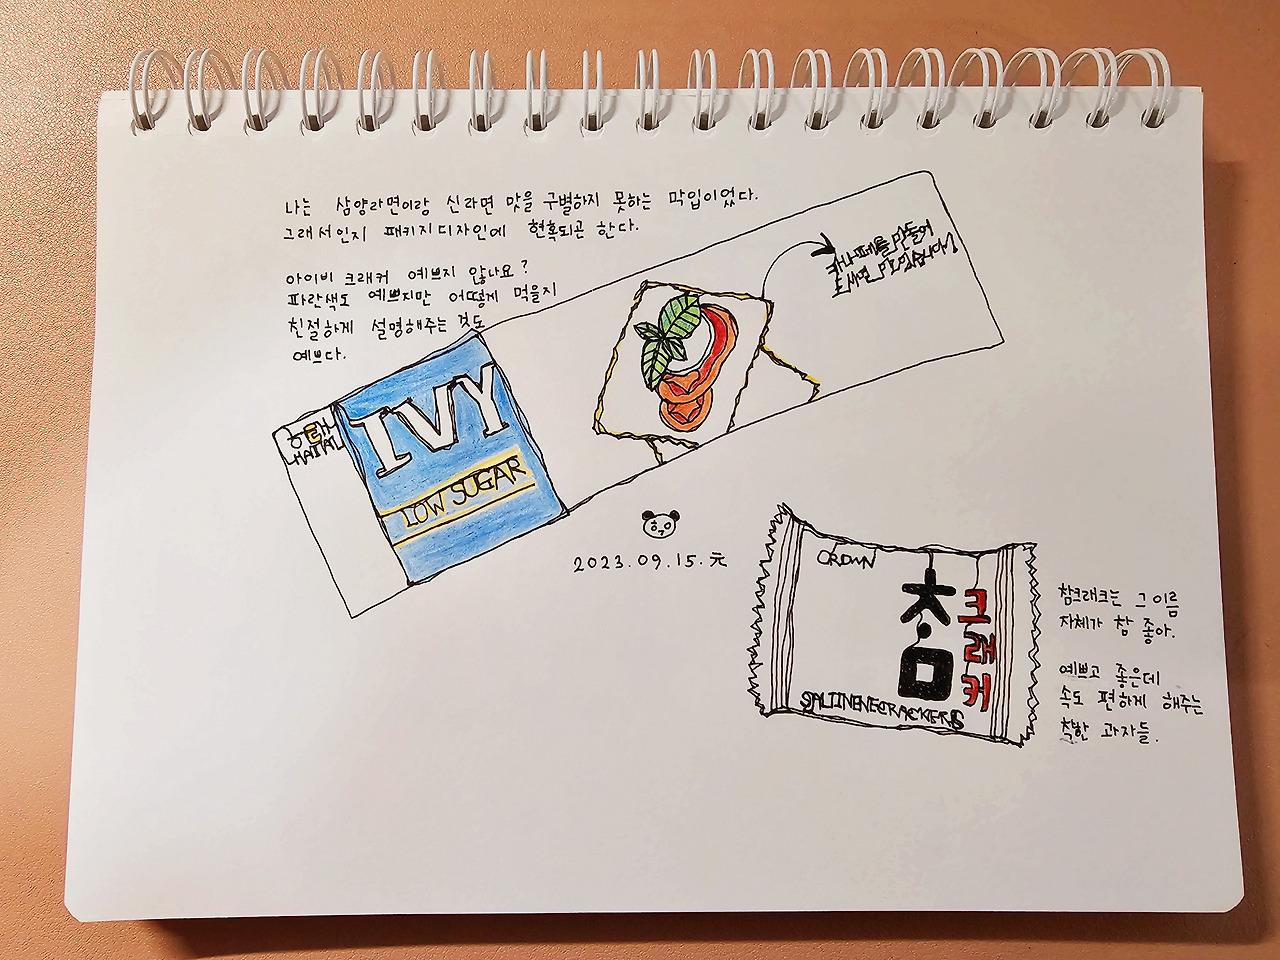 나는 삼양라면이랑 신라면 맛을 구별하지 못하는 막입이었다.
그래서인지 패키지디자인에 현혹되곤 한다.
아이비 크래커 예쁘지 않나요?
파란색도 예쁘지만 어떻게 먹을지
친절하게 설명해주는 것도
예쁘다.
카나페를 만들어
드세면 맛있습니다
해태
HAITAI
IVY
LOW SUGAR
2023.09.15.
CROWN
참
크래커
SALTINENECRACKERS
참크래크는 그 이름
자체가 참 좋아.
예쁘고 좋은데
속도 편하게 해주는
착한 과자들.